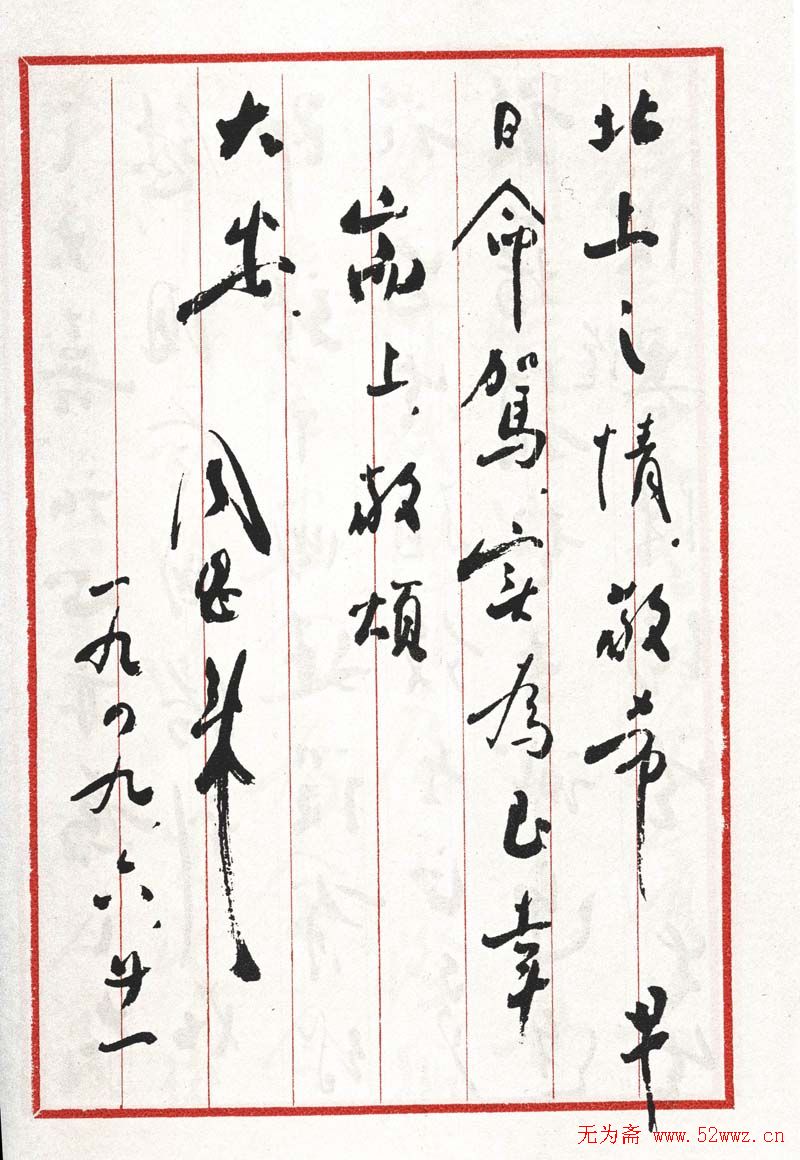 北上之情.敬希早
日命駕.實為至幸
耑上.敬頌
大安.
周恩来
一九四九.六.廿一
无为斋 www.52wwz.cn